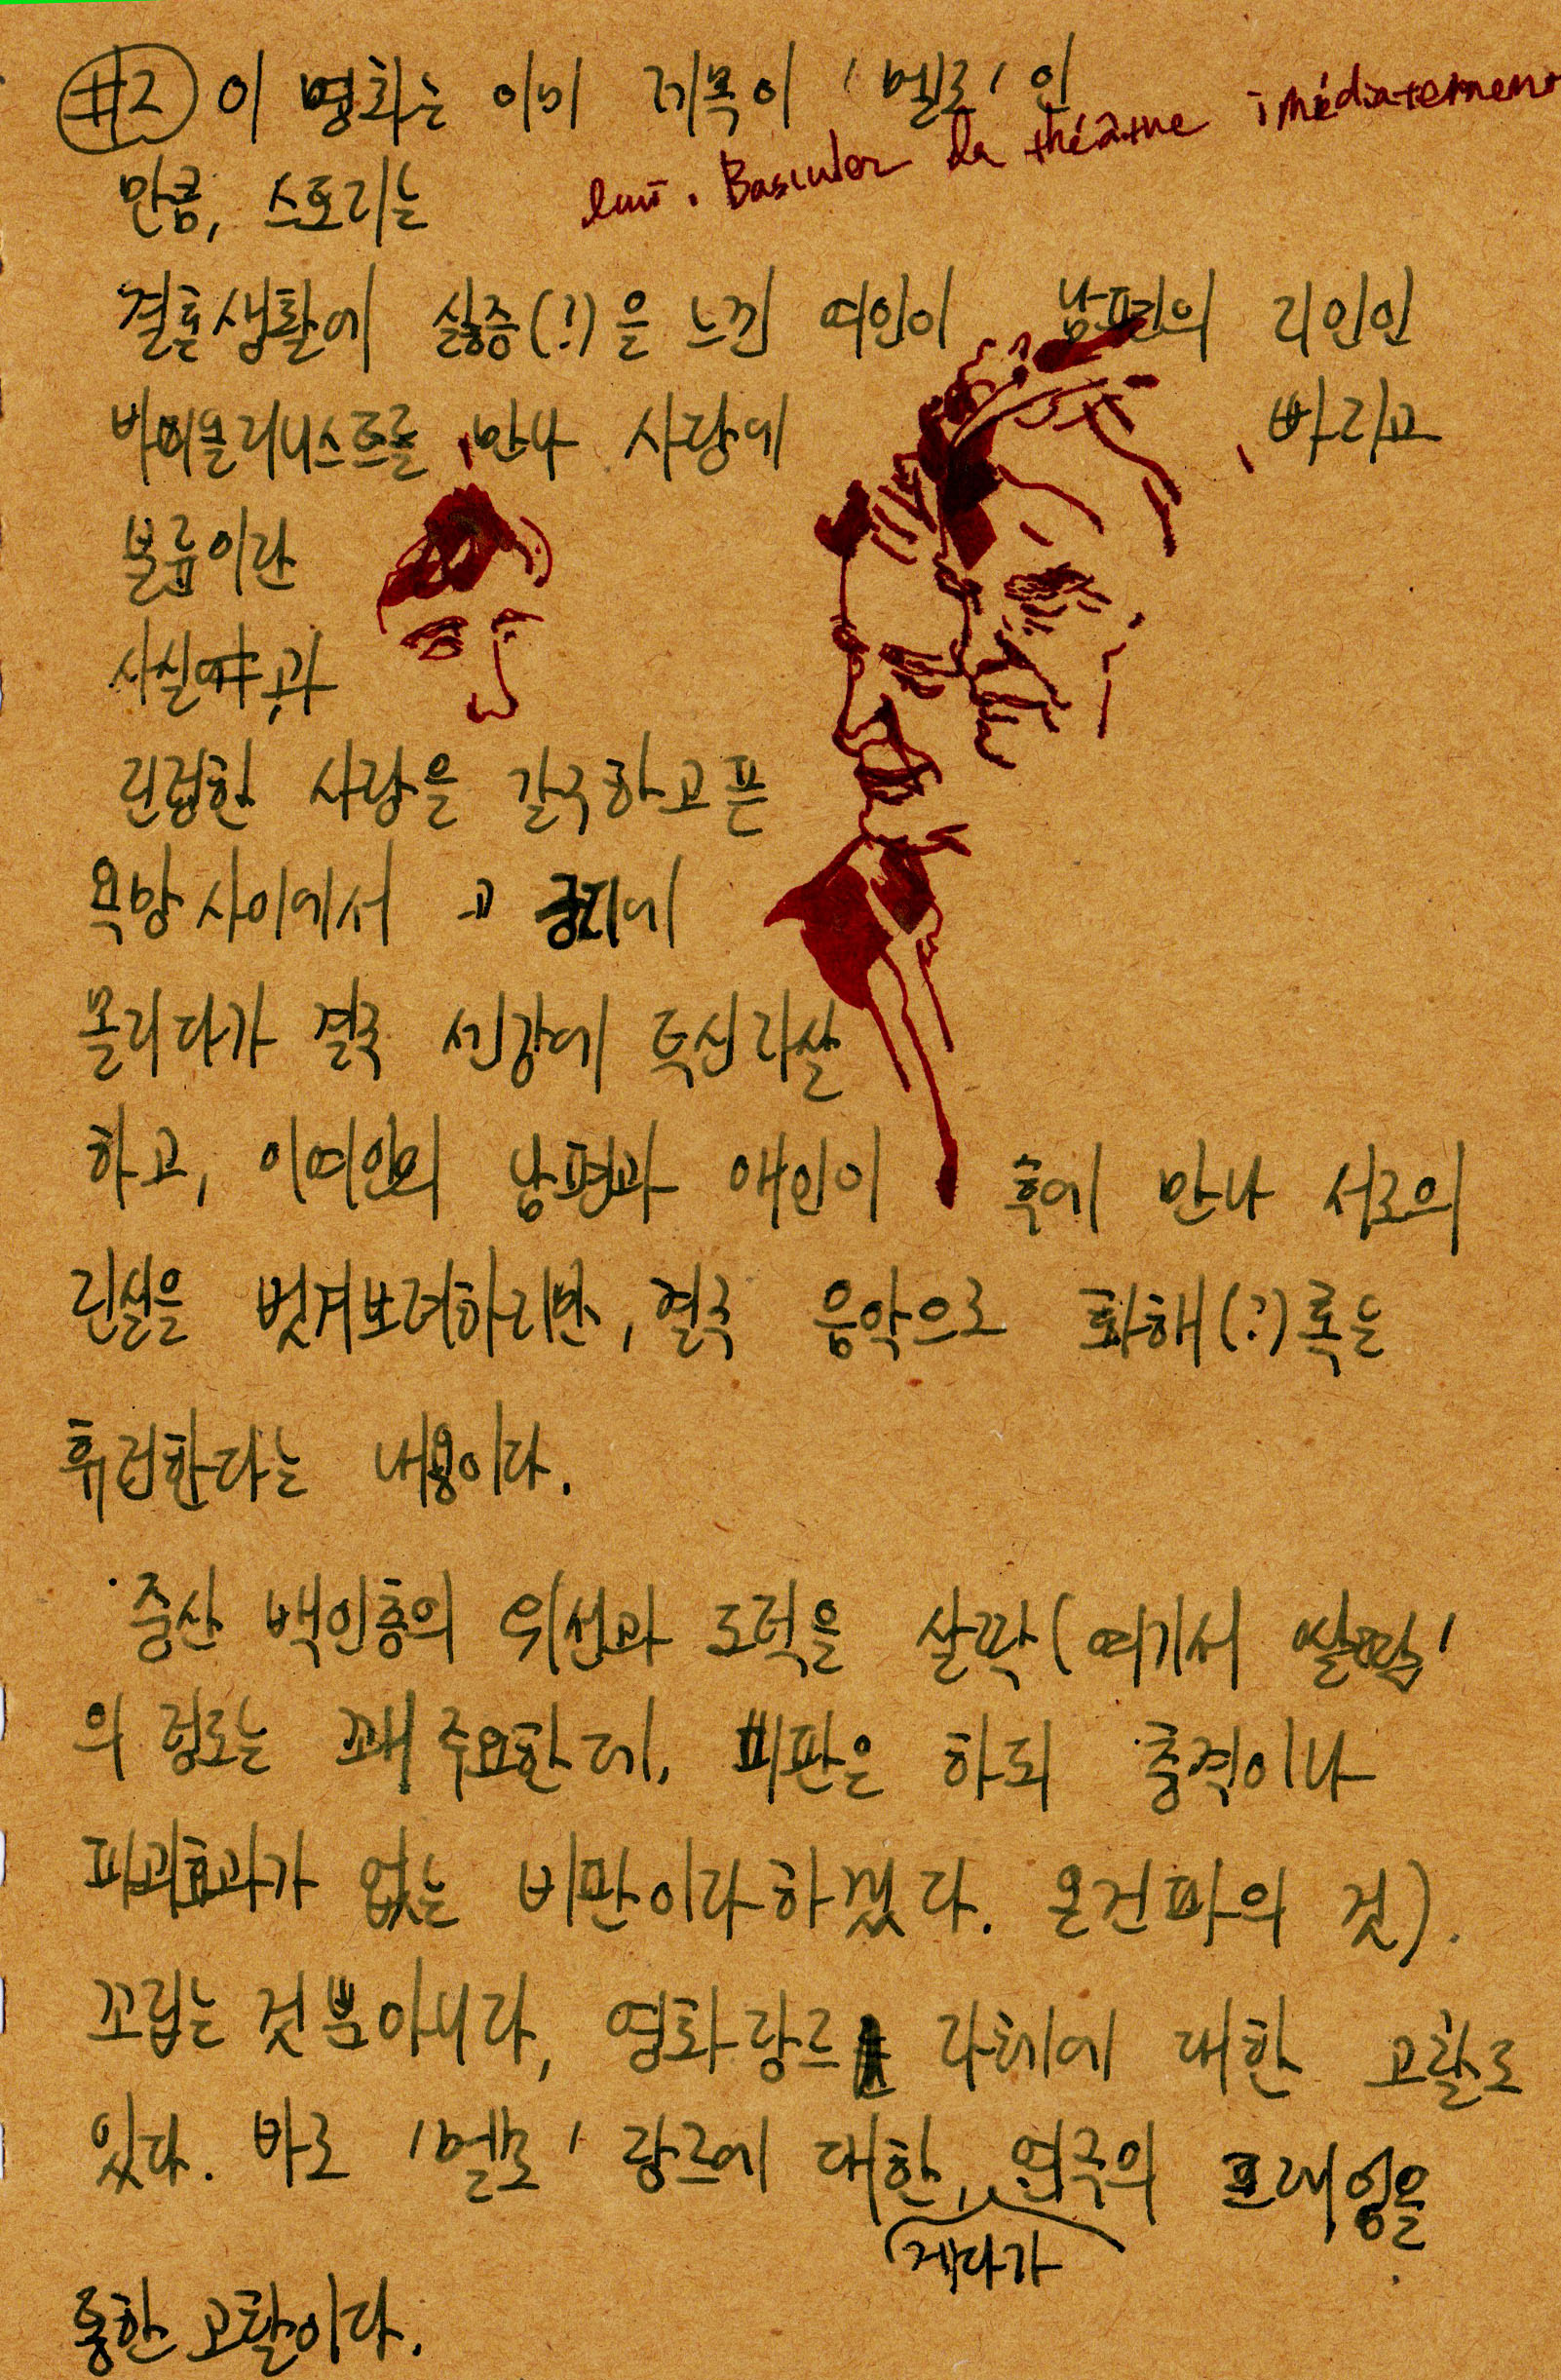 #2 이 영화는 이미 제목이 '멜로'인
lui. Basculer la théâtre imédiatement
만큼, 스토리는
결혼생활에 싫증(!)을 느낀 여인이 남편의 지인인
바이올리니스트를 만나 사랑에 빠지고
불륜이란
사실여부과
진정한 사랑을 갈구하고픈
욕망사이에서 궁지에
몰리다가 결국 센강에 투신자살
하고, 이여인의 남편과 애인이 후에 만나 서로의
진실을 벗겨보려하지만, 결국 음악으로 화해(?)쪽을
취한다는 내용이다.
중산 백인층의 위선과 도덕을 살짝(여기서 '살짝'
의 정도는 꽤 중요한데, 비판은 하되 충격이나
파괴효과가 없는 비판이라하겠다. 온건파의 것).
꼬집는 것뿐아니라, 영화장르 자체에 대한 고찰도
있다. 바로 '멜로' 장르에 대한, 연극의 프레임을
게다가
통한 고찰이다.